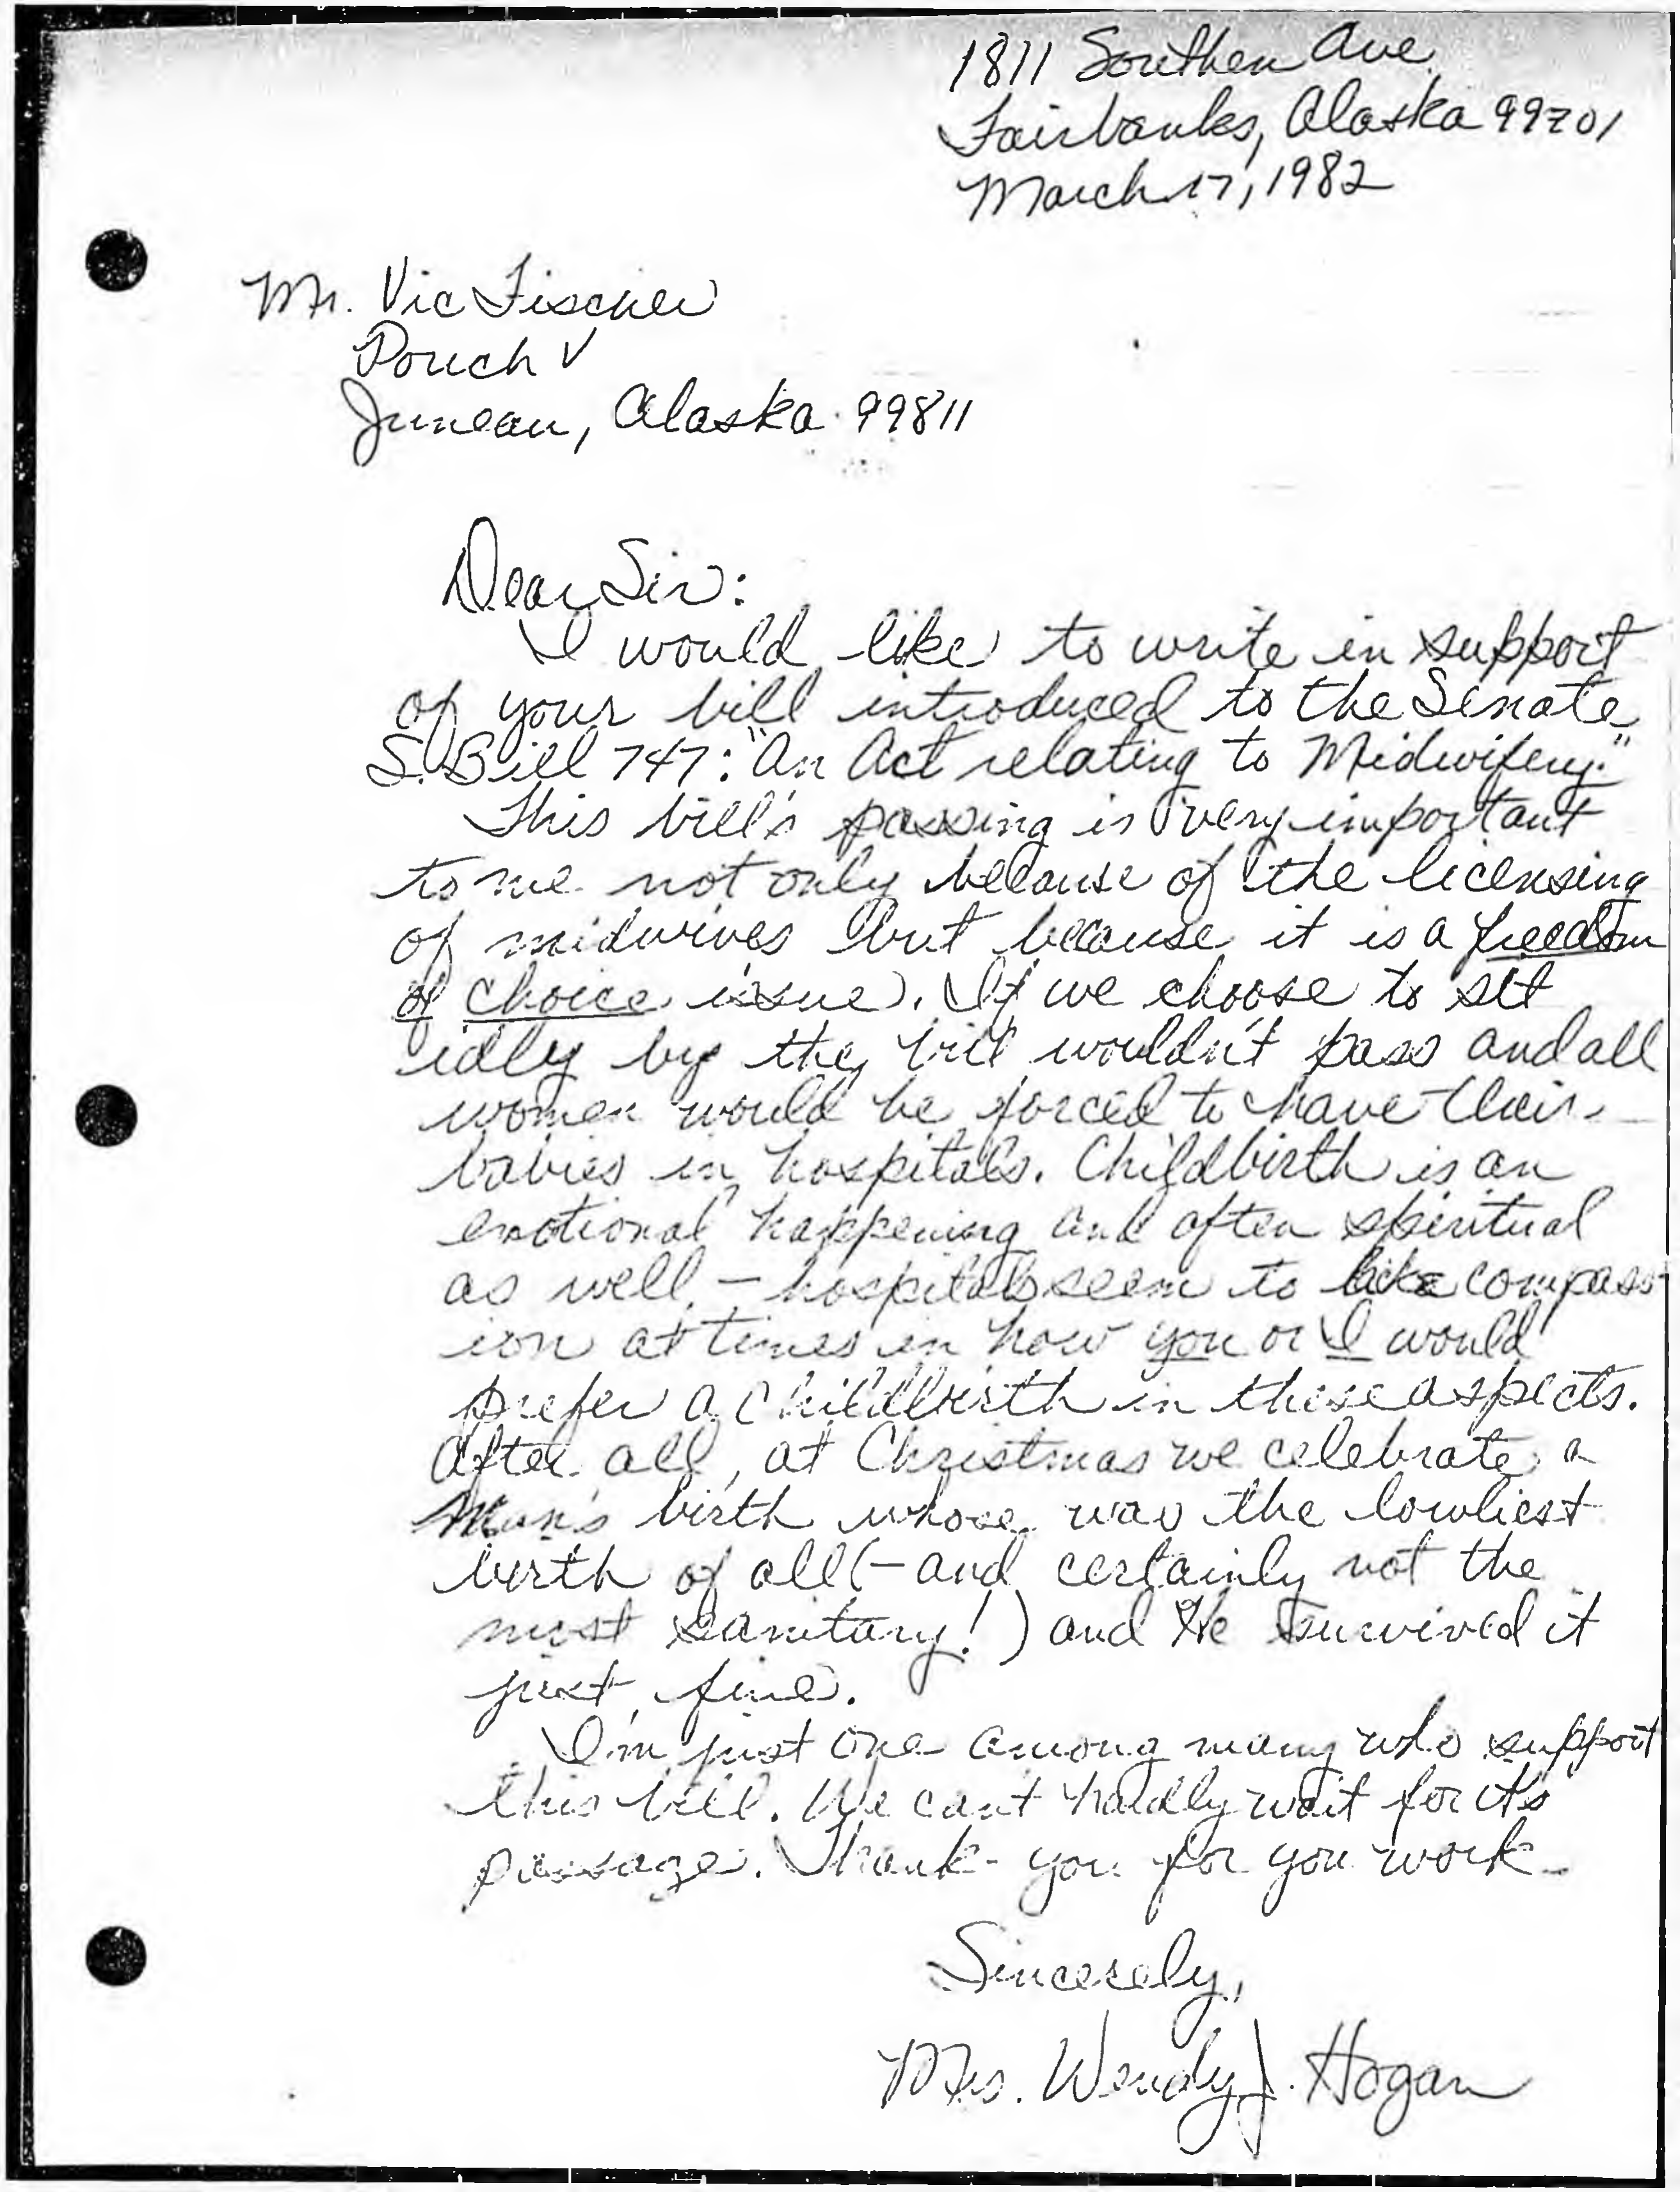 1811 Southern Ave.
Fairbanks, Alaska 99701
March 17, 1982
Mr. Vic Fischer
Pouch V
Juneau, Alaska 99811
Dear Sir:
I would like to write in support
of your bill introduced to the Senate
S. Bill 747: "An Act relating to Midwifery."
This bill's passing is very important
to me not only because of the licensing
of midwives but because it is a freedom
of choice issue. If we choose to sit
idly by the bill wouldn't pass and all
women would be forced to have their
babies in hospitals. Childbirth is an
emotional happening and often spiritual
as well - hospitals seem to lack compass-
ion at times in how you or I would
prefer a childbirth in these aspects.
After all, at Christmas we celebrate a
Man's birth whose was the lowliest
birth of all (- and certainly not the
most sanitary!) and He survived it
just fine.
I'm just one among many who support
this bill. We can't hardly wait for it's
passage. Thank-you for you work
Sincerely,
Mrs. Wendy J. Hogan